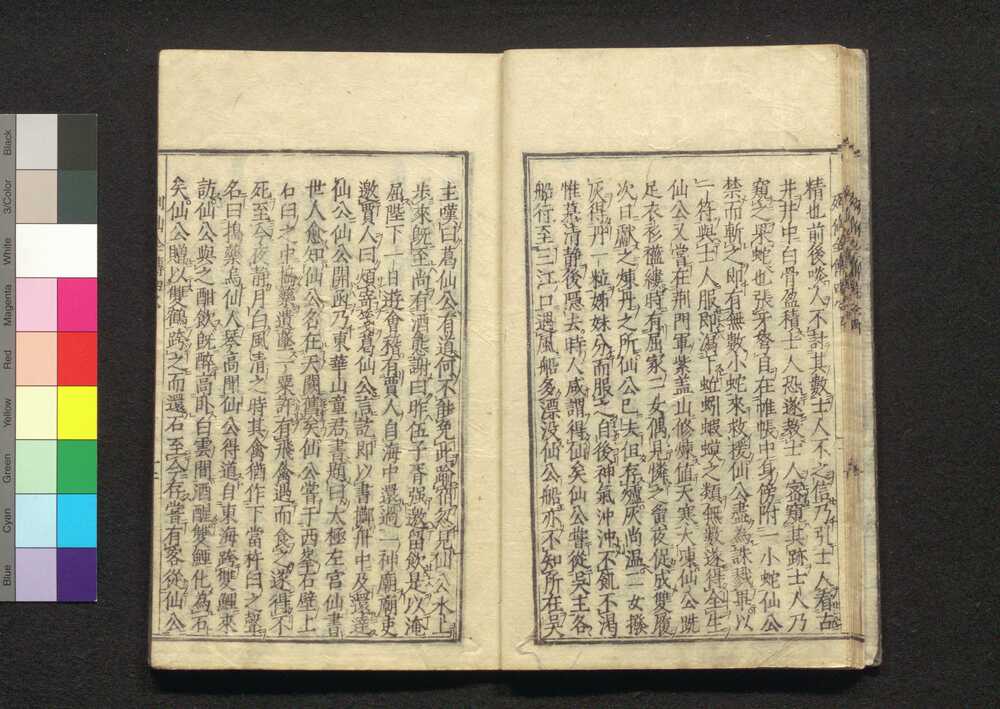 精也前後啖人不計其數士人不之信乃引士人看古
井井中白骨盈積士人恐遂教士人密窺其跡士人乃
窺之果蛇也張牙奮目在帷帳中身傍附一小蛇仙公
禁而斬之即有無數小蛇來救援仙公盡為誅戮畢以
一符與士人服即瀉下蚯蚓蝦蟆之類無數遂得全生
仙公又嘗在荆門軍紫盖山修煉值天寒大凍仙公跣
足衣衫襤縷時有屈家二女偶見憐之畬夜促成雙履
次日獻之煉丹之所仙公已去但存爐灰尚温二女撥
灰得丹一粒姊妹分而服之自後神氣沖沖不飢不渴
惟慕清静後隠去時人咸謂得仙矣仙公嘗從吴主各
船行至三江口遇風船多漂没仙公船亦不知所在吴
主嘆曰葛仙公有道何不能免此踰宿忽見仙公水上
歩來既至尚有酒態謝曰昨伍子胥强邀留飲是以淹
屈陛下一日遊會稽有賈人自海中還過一神廟廟吏
邀賈人曰煩寄箋葛仙公言訖即以書擲舟中及還達
仙公仙公開函乃東華山童君書題曰太極左官仙書
世人愈知仙公名在天闕舊矣仙公嘗于西峯石壁上
石臼之中擣藥遺墜一粟許有飛禽過而食之遂得不
死至今夜静月白風清之時其禽猶作丁當杵臼之聲
名曰搗藥鳥仙人琴高聞仙公得道自東海跨雙鯉來
訪仙公與之酣飲既醉高卧白雲間酒醒雙鯉化為石
矣仙公贈以雙鶴跨之而還石至今存嘗有客從仙公
Black
3/Color
White
Magenta
Red
Yellow
Green
Cyan
Blue